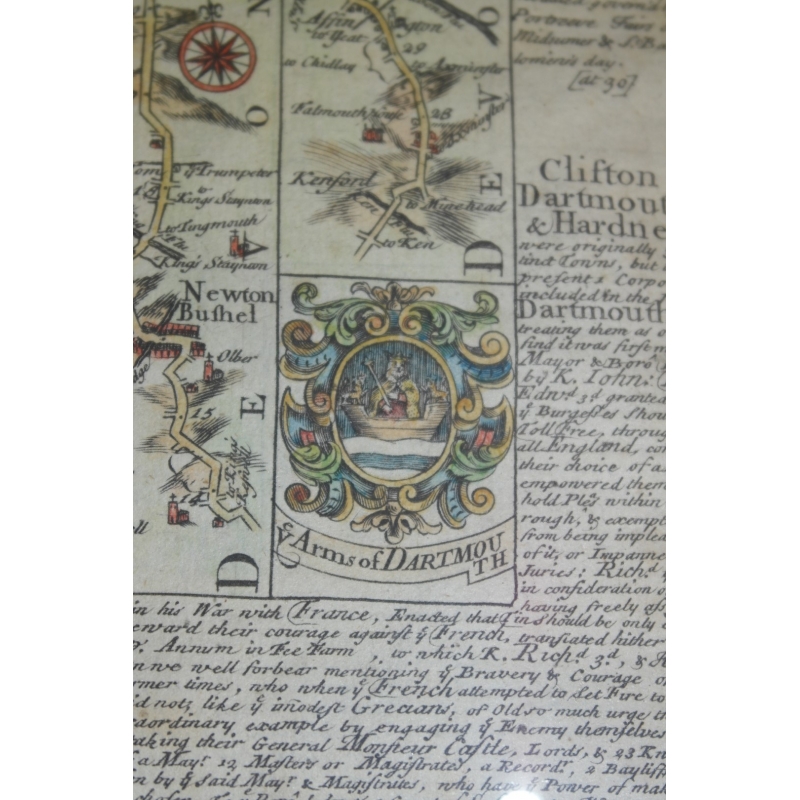 Portreeve Fairs
Midsumer &
tomein's day.
[at 30]
N
O
V
E
D
29
to Chidley
to Axminster
Falmouth house
28
Kenford
to Minehead
to Ken
D E V O
ye Trumpeter
to Kings Staynton
to Tingmouth
Kings Staynton
Newton
Bushel
Olber
15
14
ye Arms of DARTMOU
TH
Clifton
Dartmout
& Hardne
were originally
tinct Towns, but
present 1 Corpo
included in the
Dartmouth
treating them as o
find it was first m
Mayor & Boro
by K. Iohn:
Edwrd 3d granted
ye Burgesses shou
Toll Free, throug
all England, co
their choice of a
empowered them
hold Ples within
rough, & exempt
from being implea
of it, or Impanne
Juries: Richd
in consideration o
having freely ass
in his War with France, Enacted that Tin should be only
eward their courage against ye French, translated hither
Annum in Fee Farm, to which K. Richd 3d, &
n we well forbear mentioning ye Bravery & Courage o
rmer times, who when ye French attempted to set Fire to
id not; like ye imodest Grecians, of Old so much urge th
aordinary example by engaging ye Enemy themselves
aking their General Monsieur Castle, Lords, & 23 Kn
a Mayr 12 Masters or Magistrates, a Recordr, 2 Bayliff
n by ye said Mayr & Magistrates, who have ye Power of mak